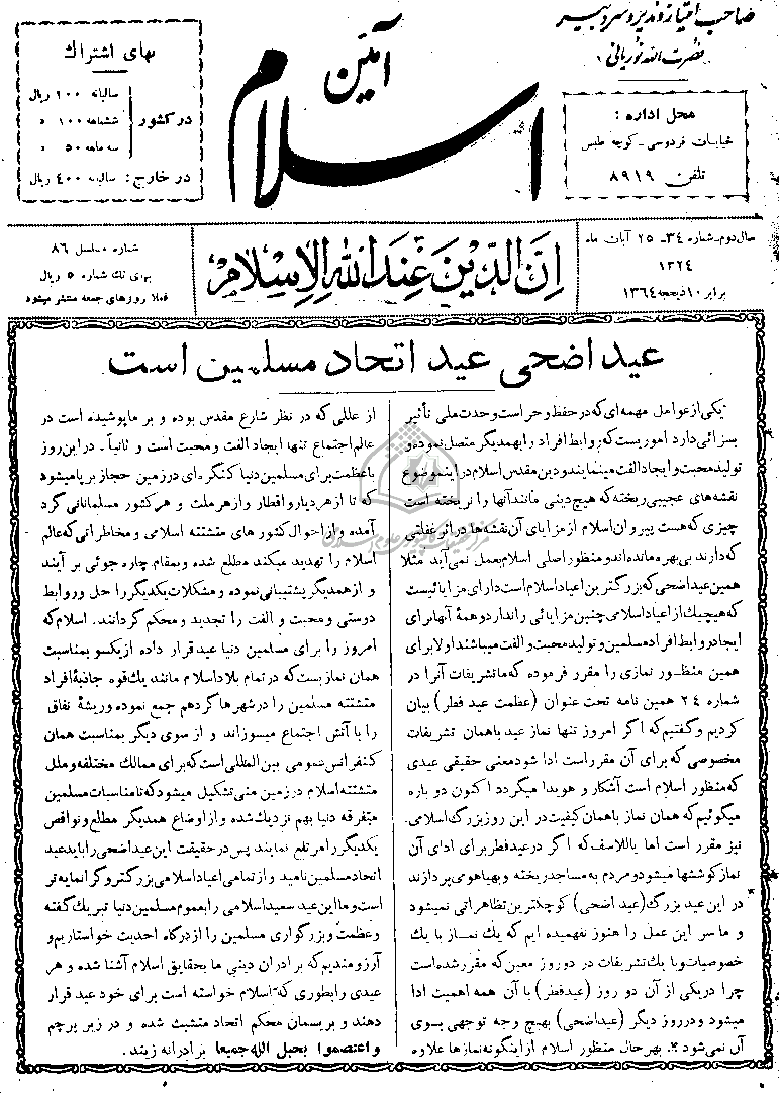 صاحب امتیاز و مدیر و سردبیر
نصرت الله نوریانی
محل اداره :
خیابات فردوسی ـ کوچه طبس
تلفن ۸۹۱۹
آئین
اسلام
بهای اشتراك
در کشور
سالیانه ۲۰۰ ریال
ششماهه ۱۰۰ »
سه ماهه ۵۰ »
در خارج: سالیانه ۴۰۰ ریال
سال دوم ـ شماره ۳۴ ـ ۲۵ آبان ماه
۱۳۲۴
برابر ۱۰ ذیحجه ۱۳۶۴
اِنَّ الدّینَ عِندَ اللهِ الاِسلام
شماره مسلسل ۸۶
بهای تك شماره ۵ ریال
فعلا روزهای جمعه منتشر میشود
عید اضحی عید اتحاد مسلمین است
یکی از عوامل مهمه ای که در حفظ و حراست وحدت ملی تأثیر
بسزائی دارد اموریست که روابط افراد را بهمدیگر متصل نموده و
تولید محبت و ایجاد الفت مینمایند و دین مقدس اسلام در اینموضوع
نقشه های عجیبی ریخته که هیچ دینی مانند آنها را نریخته است
چیزی که هست پیروان اسلام از مزایای آن نقشه ها در اثر غفلتی
که دارند بی بهره مانده اند و منظور اصلی اسلام بعمل نمی آید مثلا
همین عید اضحی که بزرگترین اعیاد اسلام است دارای مزایائیست
که هیچیك از اعیاد اسلامی چنین مزایائی را ندارد و همۀ آنها برای
ایجاد روابط افراد مسلمین و تولید محبت و الفت میباشند اولا برای
همین منظور نمازی را مقرر فرموده که ما تشریفات آنرا در
شماره ۲۴ همین نامه تحت عنوان (عظمت عید فطر) بیان
کردیم و گفتیم که اگر امروز تنها نماز عید باهمان تشریفات
مخصوصی که برای آن مقرر است ادا شود معنی حقیقی عیدی
که منظور اسلام است آشکار و هویدا میگردد اکنون دو باره
میگوئیم که همان نماز باهمان کیفیت در این روز بزرگ اسلامی
نیز مقرر است اما باللاسف که اگر در عید فطر برای ادای آن
نماز کوششها میشود و مردم به مساجد ریخته و بهیاهو می پردازند
در این عید بزرگ (عید اضحی) کوچکترین تظاهراتی نمیشود
و ما سر این عمل را هنوز نفهمیده ایم که یك نماز با یك
خصوصیات و با یك تشریفات در دو روز معین که مقرر شده است
چرا در یکی از آن دو روز (عید فطر) با آن همه اهمیت ادا
میشود و در روز دیگر (عید اضحی) بهیچ وجه توجهی بسوی
آن نمی شود ؟. بهر حال منظور اسلام از اینگونه نمازها علاوه
از عللی که در نظر شارع مقدس بوده و بر ما پوشیده است در
عالم اجتماع تنها ایجاد الفت و محبت است و ثانیاً ـ در این روز
با عظمت برای مسلمین دنیا کنگره ای در زمین حجاز برپا میشود
که تا از هر دیار و اقطار و از هر ملت و هر کشور مسلمانانی گرد
آمده و از احوال کشور های متشتته اسلامی و مخاطراتی که عالم
اسلام را تهدید میکند مطلع شده و بمقام چاره جوئی بر آیند
و از همدیگر پشتیبانی نموده و مشکلات یکدیگر را حل و روابط
دوستی و محبت و الفت را تجدید و محکم گردانند. اسلام که
امروز را برای مسلمین دنیا عید قرار داده از یکسو بمناسبت
همان نماز یست که در تمام بلاد اسلام مانند یك قوه جاذبۀ افراد
متشتته مسلمین را در شهرها گرد هم جمع نموده و ریشۀ نفاق
را با آتش اجتماع میسوزاند و از سوی دیگر بمناسبت همان
کنفرانس عمومی بین المللی است که برای ممالك مختلفه و ملل
متشتته اسلام در زمین منی تشکیل میشود که تا مناسبات مسلمین
متفرقه دنیا بهم نزدیك شده و از اوضاع همدیگر مطلع و نواقص
یکدیگر را مرتفع نمایند پس در حقیقت این عید اضحی را باید عید
اتحاد مسلمین نامید و از تمامی اعیاد اسلامی بزرگتر و گرانمایه تر
است و ما این عید سعید اسلامی را بعموم مسلمین دنیا تبریك گفته
و عظمت و بزرگواری مسلمین را از درگاه احدیت خواستاریم و
آرزومندیم که برادران دینی ما بحقایق اسلام آشنا شده و هر
عیدی را بطوری که اسلام خواسته است برای خود عید قرار
دهند و بریسمان محکم اتحاد متشبث شده و در زیر پرچم
واعتصموا بحبل الله جمیعا برادرانه زیند.